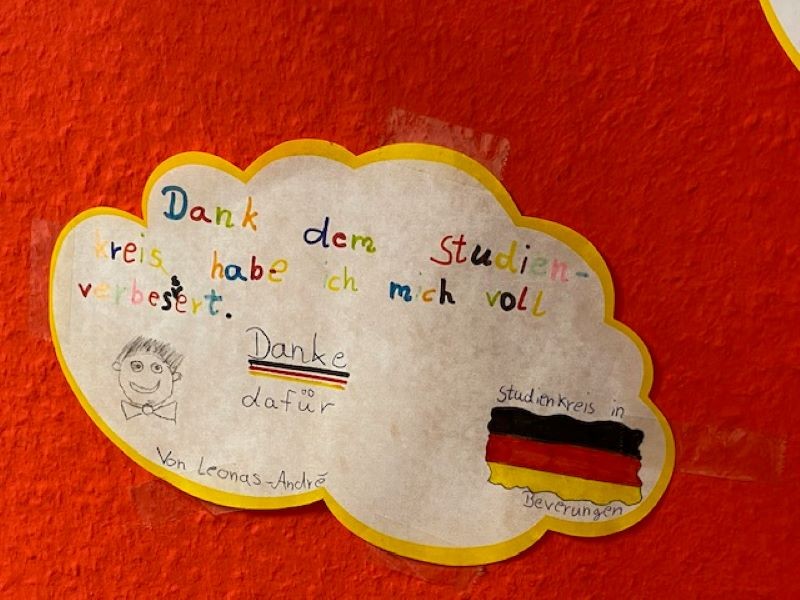 Dank dem Studien-
kreis habe ich mich voll
verbessert.
Danke
dafür
Von Leonas-André
Studienkreis in
Beverungen